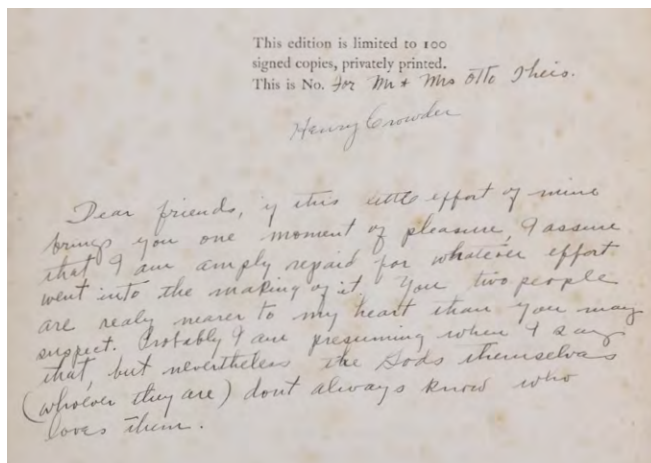 This edition is limited to 100
signed copies, privately printed.
This is No. For Mr & Mrs Otto Theis.
Henry Crowder
Dear friends, if this little effort of mine
brings you one moment of pleasure, I assure
that I am amply repaid for whatever effort
went into the making of it You two people
are realy nearer to my heart than you may
suspect. Probably I am presuming when I say
that, but nevertheless the Gods themselvas
(whoever they are) dont always know who
loves them.